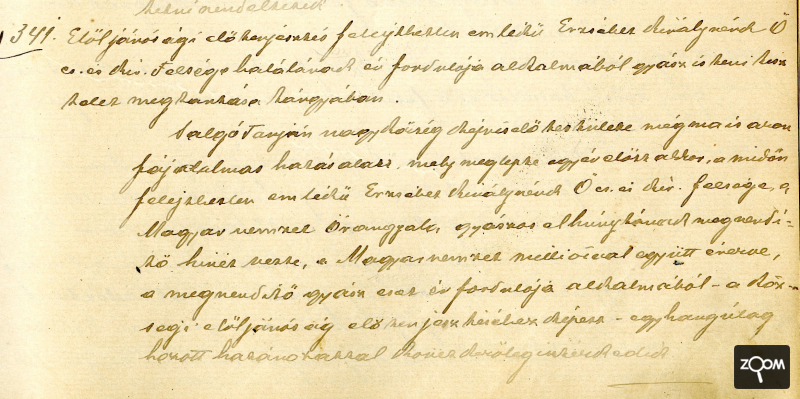 341. Elöljárósági előterjesztés felejthetlen emlékű Erzsébet királynénk Ő
cs. és kir. Felsége halálának év fordulója alkalmából gyász isteni tisz
telet megtartása tárgyában.
Salgó Tarján nagyközség képviselő testülete még ma is azon
fájdalmas hatás alatt, mely meglepte egy év előtt akkor, a midőn
felejthetlen emlékű Erzsébet királynénk Ő cs. és kir. felsége, a
Magyar nemzet Őrangyala, gyászos elhunytának megrendí-
tő hirét vette, a Magyar nemzet millióival együtt érezve,
a megrendítő gyász eset év fordulója alkalmából - a köz-
ségi elöljáróság előterjesztéséhez képest - egyhangúlag
hozott határozattal
ZOOM